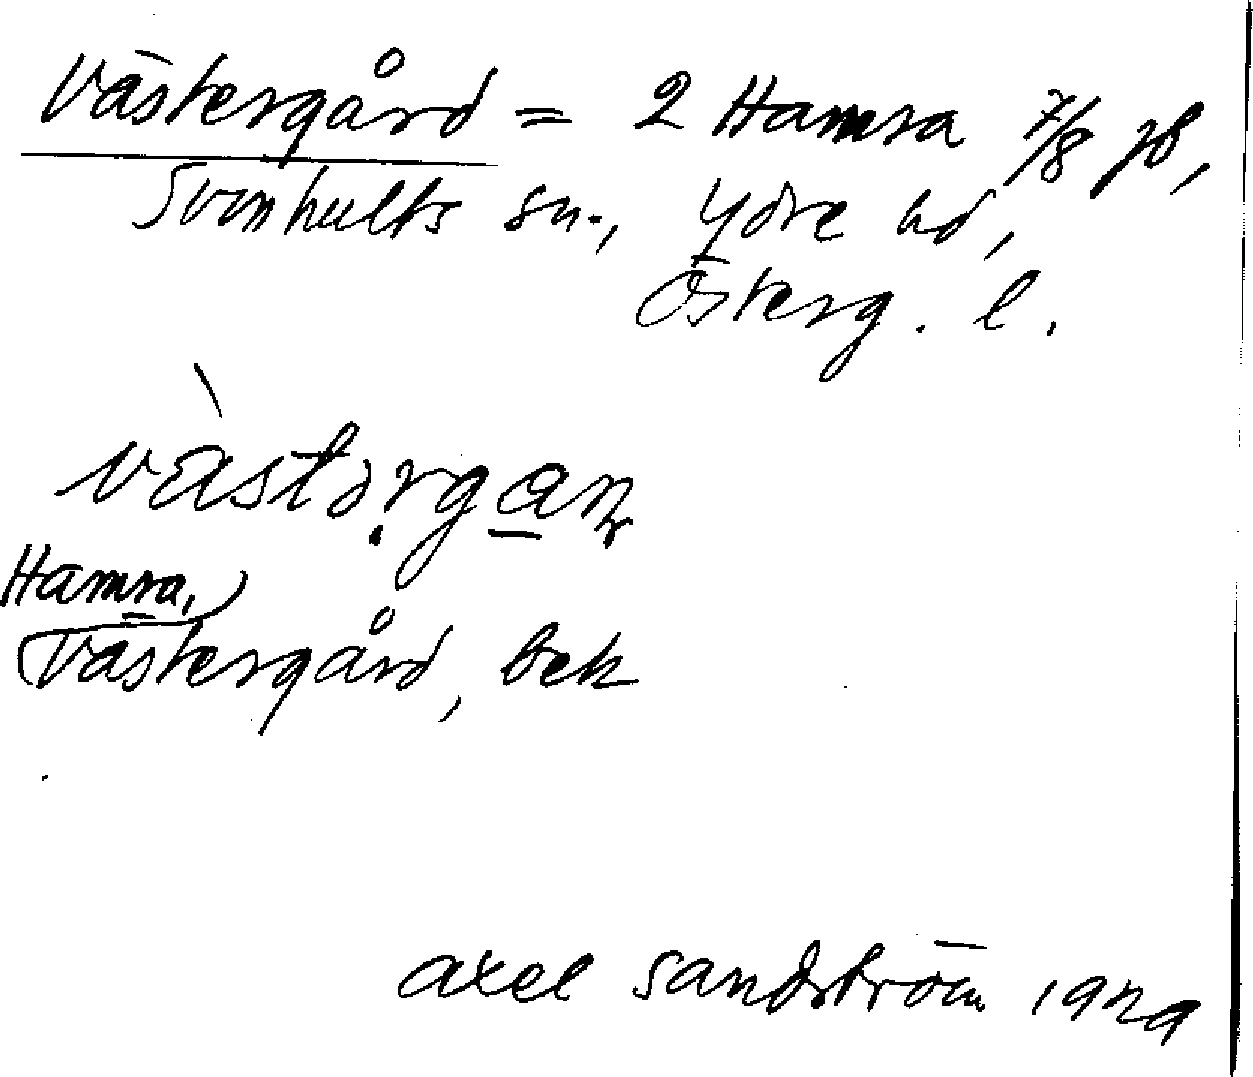 Västergård = 2 Hamra 7/8 jb,
Svinhults sn., Ydre hd,
Österg. l.
västərgan
Hamra,
Västergård, bek
Axel Sandström 1929